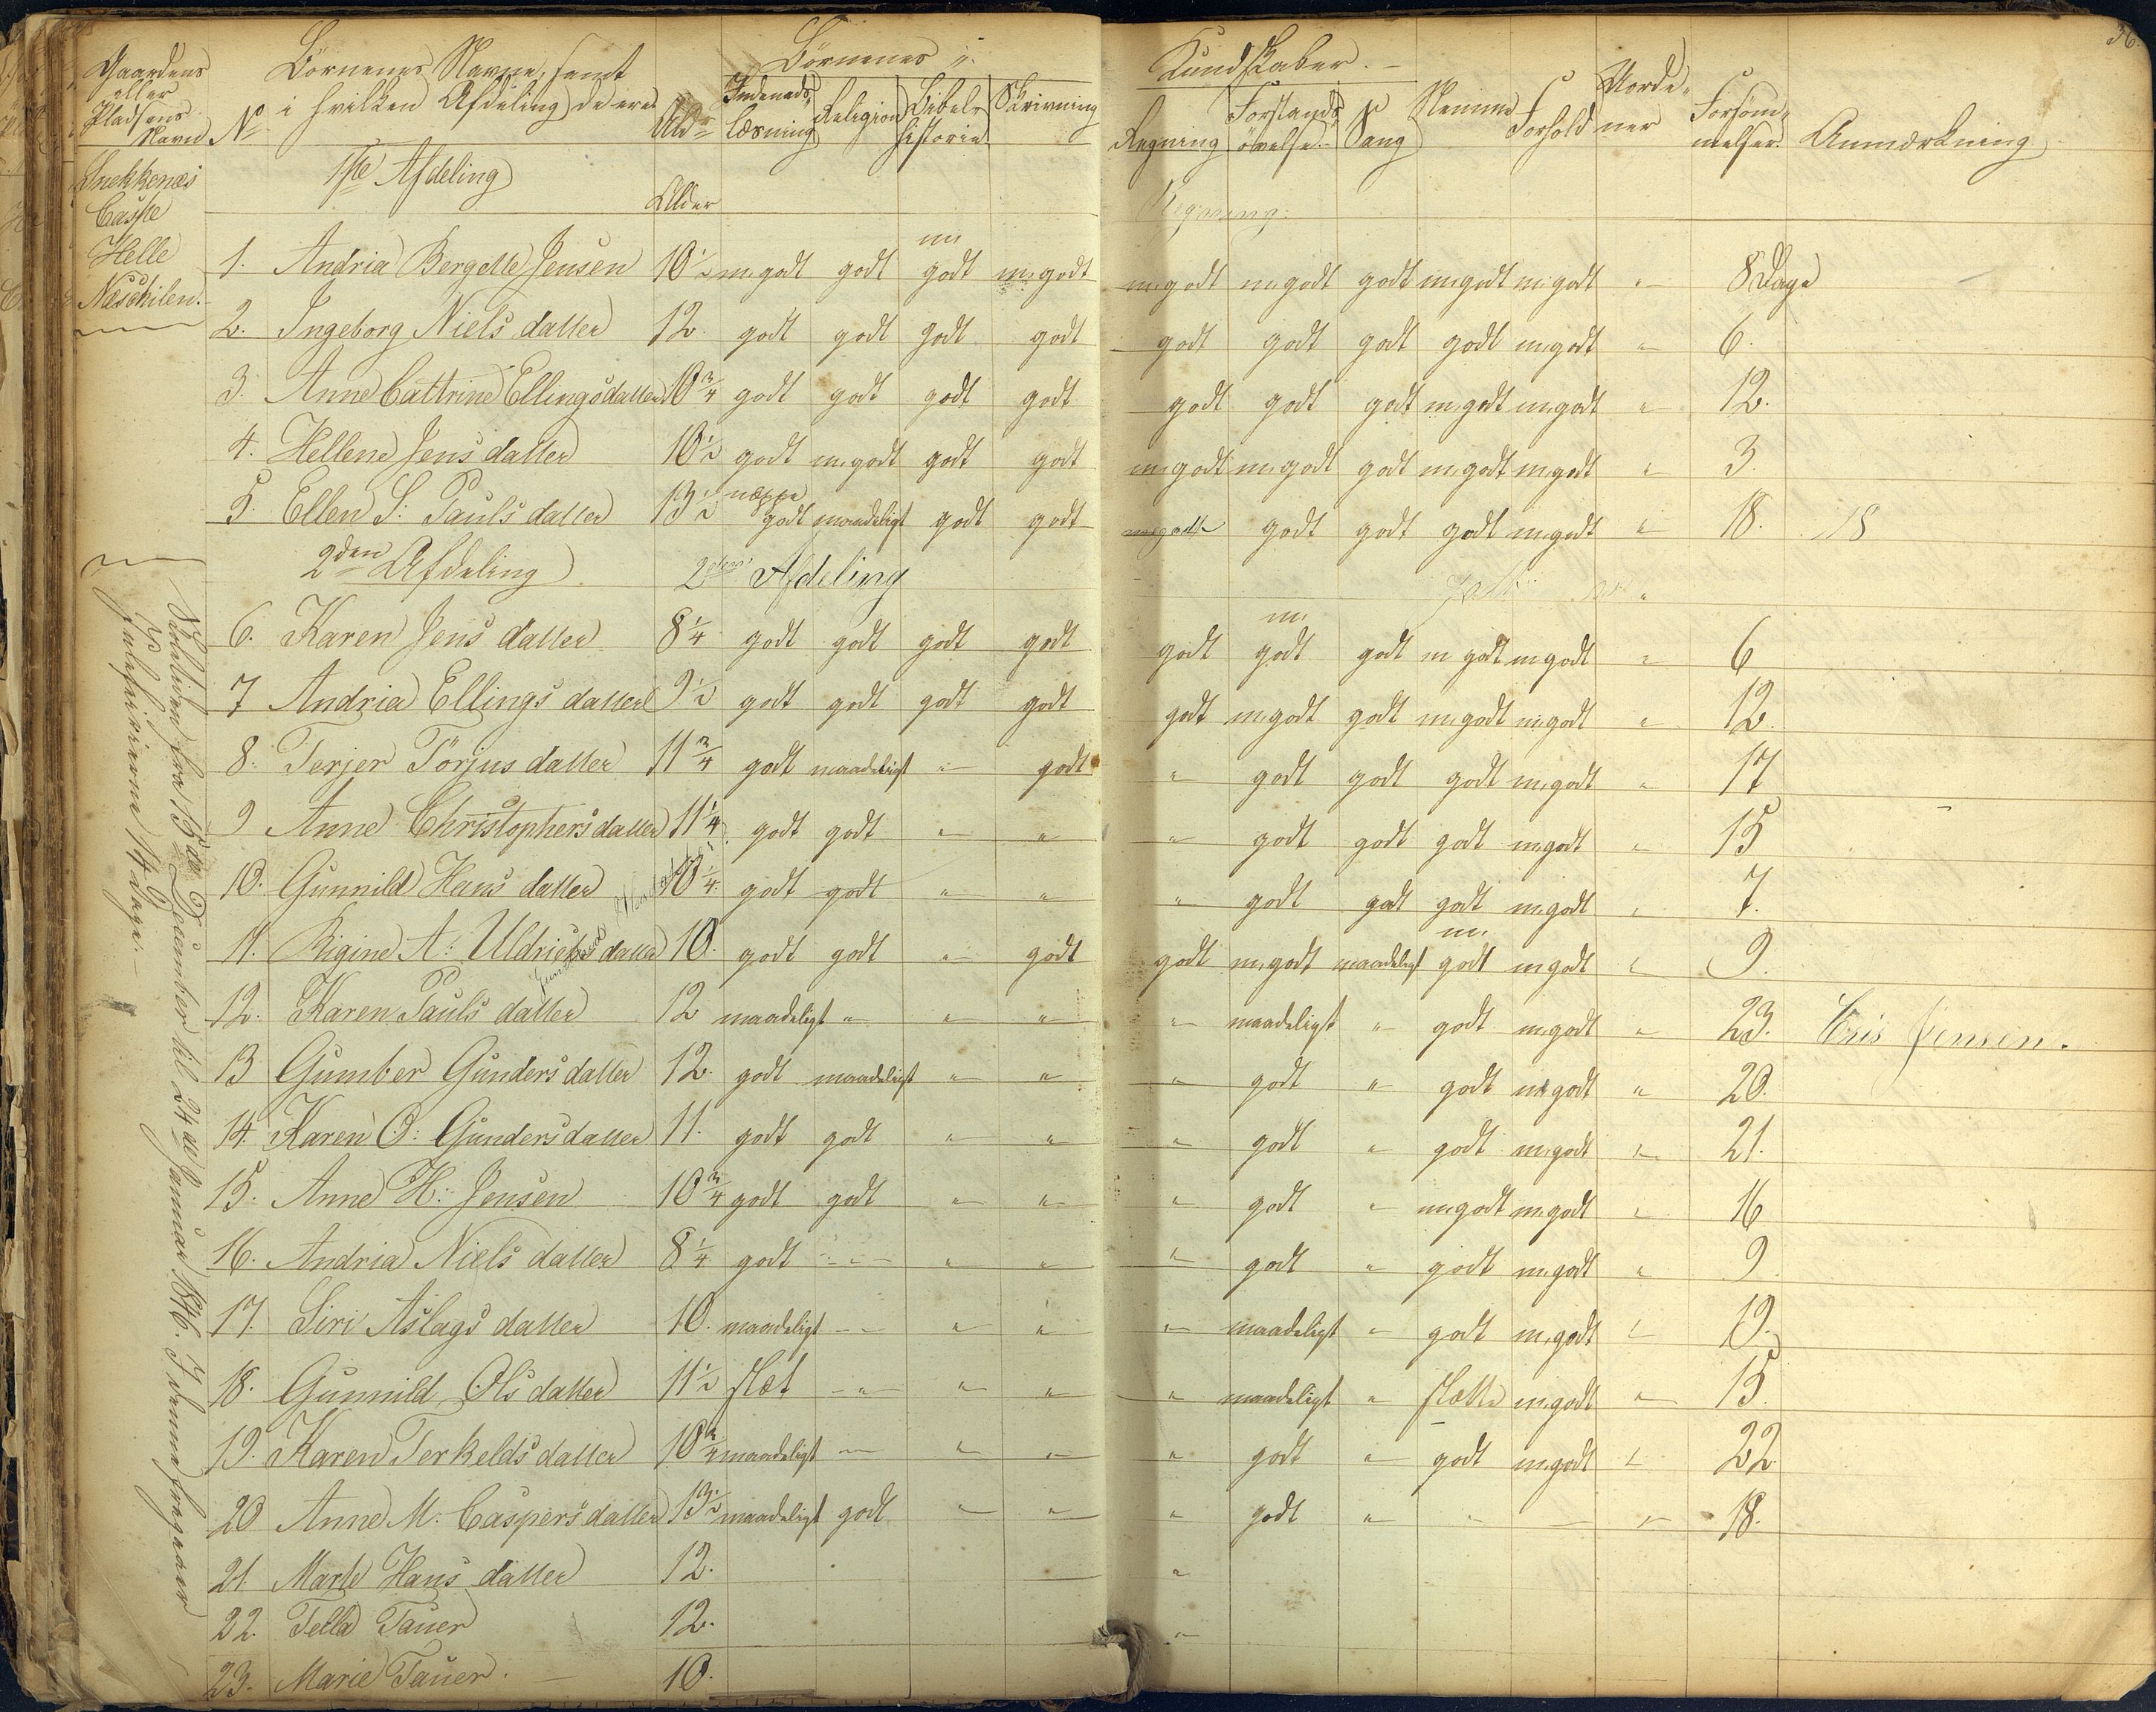 36.
Gaardens eller Pladsens Navn No Börnenes Navne, samt i hvilken Afdeling de ere Alder Börnenes Kundskaber.
Indenads læsning Religion Bibel-historie Skrivning Regning Forstands-övelse Sang Nemme Forhold Morde-ner Forsöm-melser. Anmærkning
Snekkenæs
Caspe
Helle
Næskilen.
1ste Afdeling
Alder
Regning.
1. Andria Bergette Jensen 10 1/2 m. godt godt m godt m. godt m. godt m. godt godt m. godt m. godt " 8 Dage
2. Ingeborg Niels datter 12 godt godt godt godt godt godt godt godt m. godt " 6.
3. Anne Cattrine Ellingsdatter 10 3/4 godt godt godt godt godt godt godt m. godt m. godt " 12.
4. Hellene Jens datter 10 1/2 godt m. godt godt godt m. godt m. godt godt m. godt m. godt " 3.
5. Ellen S: Pauls datter 13 1/2 næppe godt maadeligt godt godt m. godt godt godt godt m. godt " 18. 18
2den Afdeling 2den Afdeling
6. Karen Jens datter 8 1/4 godt godt godt godt godt m godt godt m godt m. godt " 6
7 Andria Ellings datter 9 1/2 godt godt godt godt godt m. godt godt m. godt m. godt " 12.
8. Terjer Törjus datter 11 3/4 godt maadeligt " godt " godt godt godt m. godt " 17
9 Anne Christophers datter 11 1/4 godt godt " " " godt godt godt m. godt " 15
10. Gunnild Hans datter 10 1/4 godt godt " " " godt godt godt m. godt " 7.
11. Rigine A: Uldrichs datter 10. godt godt " godt godt m. godt maadeligt m. godt m. godt " 9.
12. Karen Pauls datter 12 maadeligt " " " " maadeligt " godt m. godt " 23. Cris Jensen.
13 Gumber Gunders datter 12. godt maadeligt " " " godt " godt m. godt " 20.
14. Karen O: Gunders datter 11. godt godt " " " godt " godt m. godt " 21.
15. Anne H: Jensen 10 3/4 godt godt " " " godt " m. godt m. godt " 16
16. Andria Niels datter 8 1/4 godt " " " " godt " godt m. godt " 9
17. Siri Aslags datter 10. maadeligt " " " " maadeligt " godt m. godt " 19.
18. Gunnild Ols datter 11 1/2 slet " " " " maadeligt " slette m. godt " 15.
19. Karen Terkelds datter 10 3/4 maadeligt " " " " godt " godt m. godt " 22
20 Anne M. Caspers datter 13 1/2 maadeligt godt " " " godt " " " " 18.
21. Marte Hans datter 12. "
22. Tella Tauer 12. "
23. Marie Tauer. 10.
Skoletiden fra 15de December til 24de Januar 1846. I denne fragaaer
Juleferierne 14 dage.